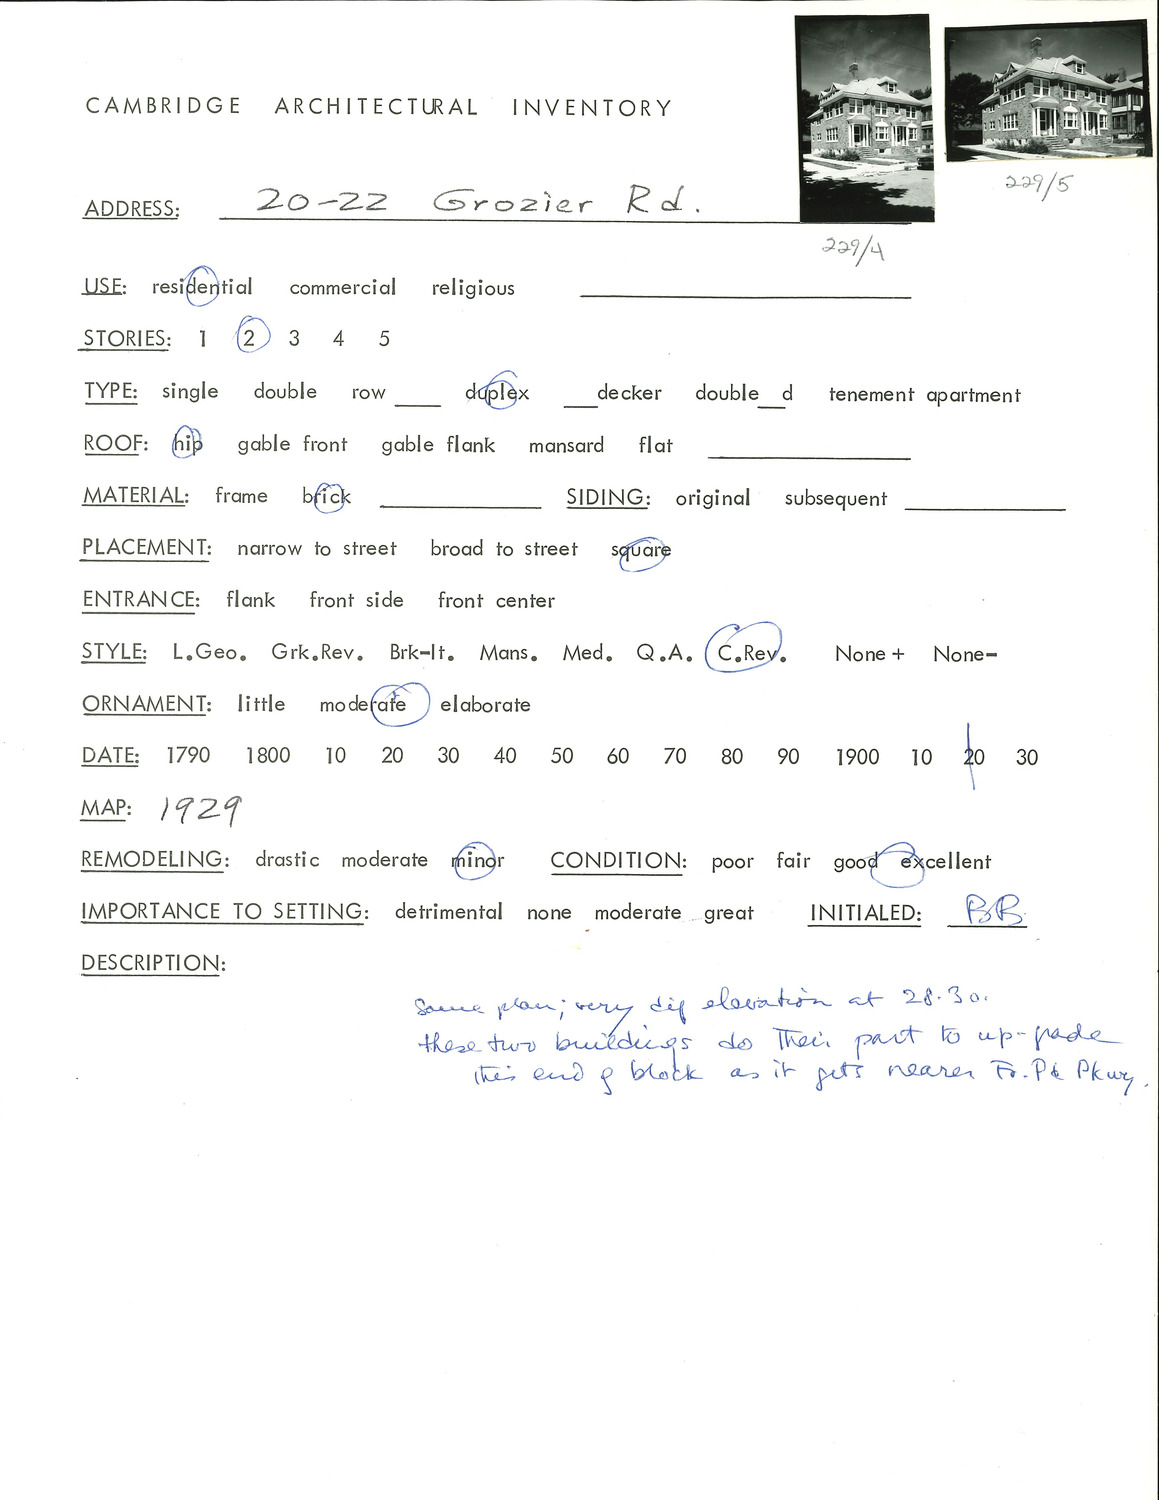 CAMBRIDGE ARCHITECTURAL INVENTORY
229/5
ADDRESS: 20-22 Grozier Rd.
229/4
USE: residential commercial religious
STORIES: 1 2 3 4 5
TYPE: single double row ____ duplex ___decker double__d tenement apartment
ROOF: hip gable front gable flank mansard flat
MATERIAL: frame brick SIDING: original subsequent
PLACEMENT: narrow to street broad to street square
ENTRANCE: flank front side front center
STYLE: L.Geo. Grk.Rev. Brk-It. Mans. Med. Q.A. C.Rev. None+ None-
ORNAMENT: little moderate elaborate
DATE: 1790 1800 10 20 30 40 50 60 70 80 90 1900 10 20 30
MAP: 1929
REMODELING: drastic moderate minor CONDITION: poor fair good excellent
IMPORTANCE TO SETTING: detrimental none moderate great INITIALED: BB
DESCRIPTION:
Same plan; very dif elevation at 28-30.
these two buildings do their part to up-grade
this end of block as it gets nearer Fr. Pk Pkwy.